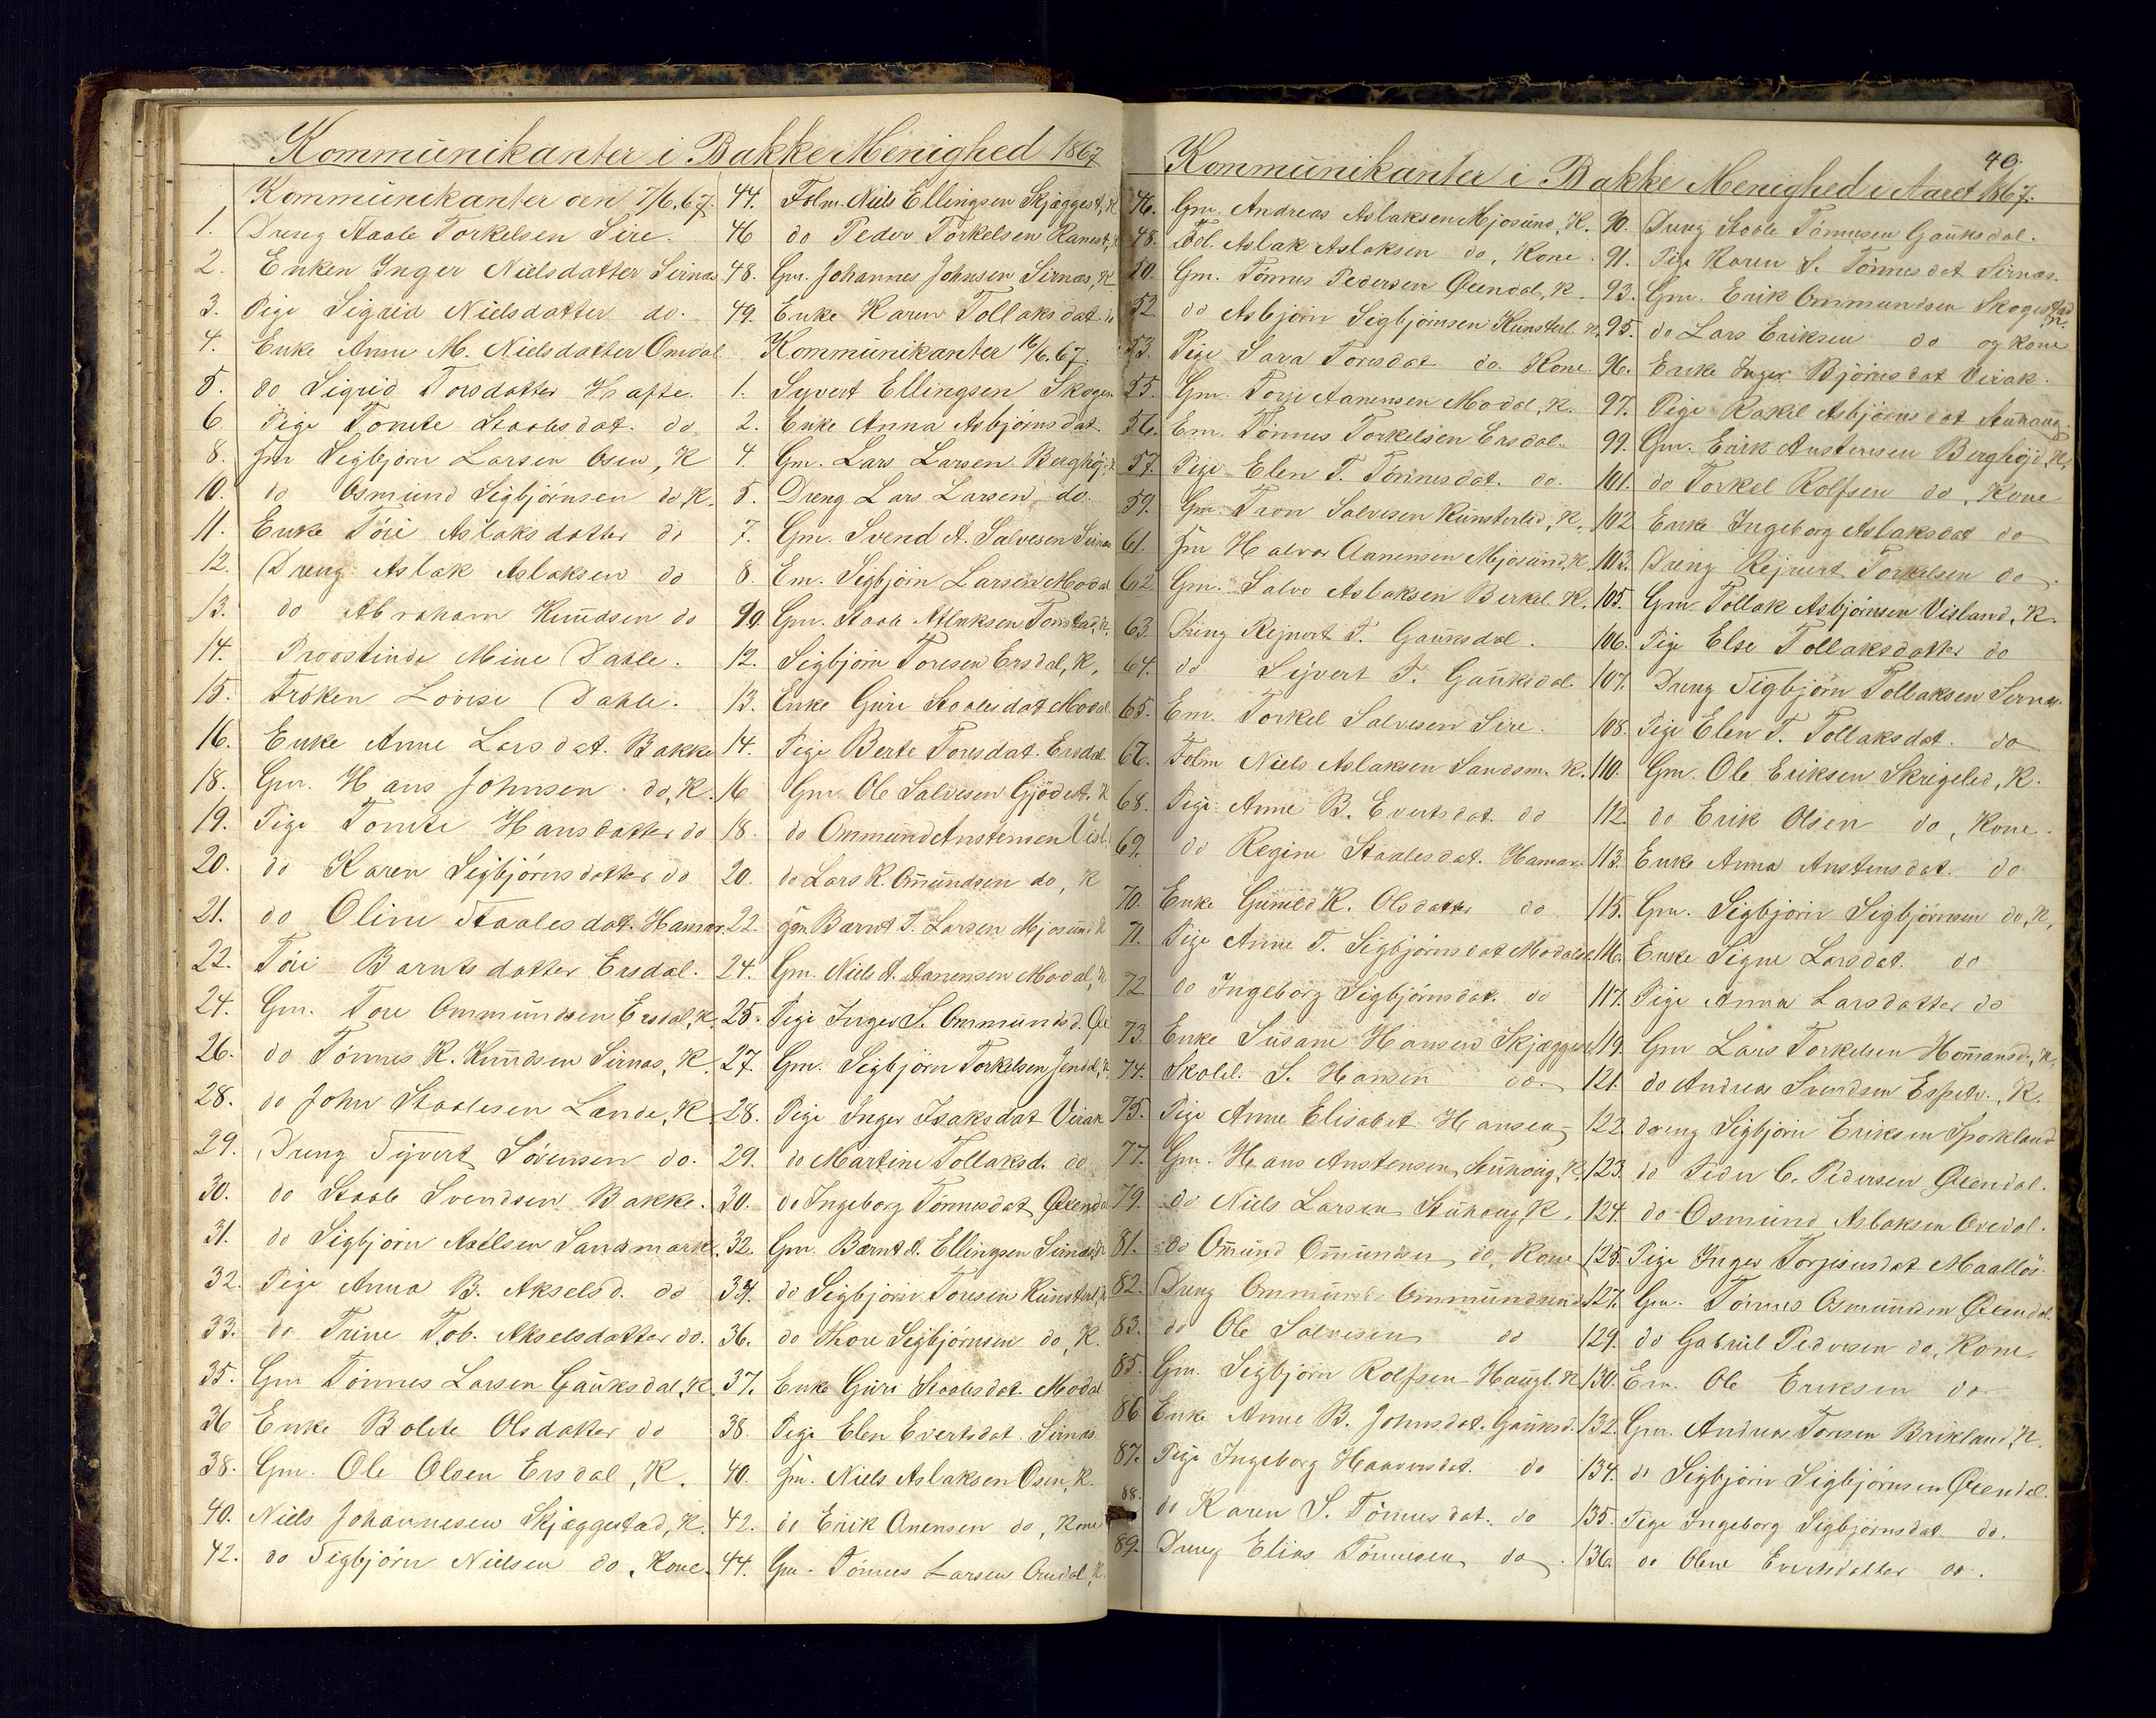 Kommunikanter i Bakke Menighed 1867
Kommunikanter den 7/6.67.
1. Dreng Staale Torkelsen Sire.
2. Enken Inger Nielsdatter Sirnas
3. Pige Sigrid Nielsdatter do.
4. Enke Anne M. Nielsdatter Omdal
5. do Sigrid Torsdatter Hafte.
6. Pige Tomte Staalesdat. do
8. Gm Sigbjörn Larsen Osen, K
10. do Osmund Sigbjörnsen do K.
11. Enke Töri Aslaksdatter do
12. Dreng Aslak Aslaksen do
13. do Abraham Knudsen do
14. Provstinde Mine Dahle.
15. Fröken Lovise Dahle.
16. Enke Anne Larsdat. Bakke
18. Gm. Hans Johnsen do, K.
19. Pige Tomte Hansdatter do
20. do Karen Sigbjörnsdatter do
21. do Oline Staalesdat. Hamar
22. Töri Barntsdatter Ersdal.
24. Gm. Tore Ommundsen Ersdal, K.
26. do Tönnes K. Knudsen Sirnas, K.
28. do John Staalesen Lande, K
29. Dreng Sijvert Sörensen do.
30. do Staale Svendsen Bakke.
31. do Sigbjörn Axelsen Sandsmark.
32. Pige Anna B. Akselsd. do
33. do Trine Tob. Akselsdatter do.
35. Gm Tönnes Larsen Gauksdal, K.
36 Enke Bolete Olsdatter do
38. Gm. Ole Olsen Ersdal, K.
40. Niels Johannesen Skjæggestad, K.
42. do Sigbjörn Nielsen do, Kone.
44. Folm. Niels Ellingsen Skjæggest, K
46 do Peder Torkelsen Ranest, K
48. Gm. Johannes Johnsen Sirnas, K
49. Enke Karen Tollaksdat. do
Kommunikanter 16/6.67.
1. Syvert Ellingsen Skogen
2. Enke Anna Asbjörnsdat.
4. Gm. Lars Larsen Berghöj
5. Dreng Lars Larsen do.
7. Gm. Svend A. Salvesen Sirnas
8. Em. Sigbjörn Larsen Modal
10. Gm. Staale Atlaksen Tonstad, K.
12. Sigbjörn Toresen Ersdal, K,
13. Enke Guri Staalesdat Modal.
14. Pige Berte Toresdat. Ersdal
16 Gm Ole Salvesen Gjödest. K
18. do Ommund Anstensen Visl.
20. do Lars K. Ommundsen do, K
22. Gm Barnt S. Larsen Mjosund K
24. Gm. Niels A. Aanensen Modal, K
25. Pige Inger S. Ommundsd.
27. Gm. Sigbjörn Torkelsen
28. Pige Inger Isaksdat Virak
29. do Martine Tollaksd. do
30. do Ingeborg Tönnesdat Öxendal
32. Gm. Barnt A. Ellingsen Sirnas, K
34. do Sigbjörn Toresen Kunsterl, K
36. do Thore Sigbjörnsen do, K.
37. Enke Guri Staalesdat. Modal
38. Pige Elen Evertsdat. Sirnas
40. Gm. Niels Aslaksen Osen, K.
42. do Erik Anensen do, Kone
44. Gm. Tönnes Larsen Omdal, K.
40.
Kommunikanter i Bakke Menighed i Aaret 1867.
46. Gm. Andreas Aslaksen Mjosund, K.
48. Aslak Aslaksen do, Kone.
50. Gm. Tönnes Pedersen Öxendal, K.
52. do Asbjörn Sigbjörnsen Kunsterl. K
53. Pige Sara Toresdat do. Kone
55. Gm. Torje Aanensen Modal, K.
56. Em. Tönnes Torkelsen Ersdal.
57. Pige Elen T. Tönnesdat. do.
59. Gm. Tron Salvesen Kunsterlid, K.
61. Gm Halvor Aanensen Mjosund, K.
62 Gm. Salve Aslaksen Berkel. K.
63. Dreng Rejnert T. Gauksdal.
64. do Sijvert T. Gauksdal.
65. Em. Torkel Salvesen Sire.
67. Folm Niels Aslaksen Sandsm. K.
68. Pige Anne B. Evertsdat do
69. do Regine Staalesdat. Hamar
70. Enke Gunild K. Olsdatter do
71. Pige Anne T. Sigbjörnsdat Modal
72 do Ingeborg Sigbjörnsdat. do
73. Enke Susane Hansen Skjæggest
74. Skolel. S. Hansen do.
75. Pige Anne Elisabet Hansen
77. Gm. Hans Anstensen Stuhaug, K.
79. do Niels Larsen Stuhaug, K.
81. do Omund Omundsen do, Kone
82. Dreng Ommund Ommundsen
83. do Ole Salvesen do
85. Gm. Sigbjörn Rolfsen Haugl. K
86 Enke Anne B. Johnsdat. Gauksd.
87. Pige Ingeborg Haaversdat. do
88. do Karen S. Tönnesdat. do
89. Dreng Elias Tönnesen do.
90. Dreng Staale Tönnesen Gauksdal.
91. Pige Karen S. Tönnesdat Sirnas.
93. Gm. Erik Ommundsen Skogestad K.
95. do Lars Eriksen do og Kone
96. Enke Inger Björnsdat Virak.
97. Pige Rakel Asbjörnsdat Stuhaug.
99. Gm. Erik Anstensen Berghöjd, K,
101. do Torkel Rolfsen do, Kone
102 Enke Ingeborg Aslaksdat do
103. Dreng Rejnert Torkelsen do.
105. Gm Tollak Asbjörnsen Visland, K.
106. Pige Else Tollaksdatter do
107. Dreng Sigbjörn Tollaksen Sirnas.
108. Pige Elen T. Tollaksdat. do
110. Gm. Ole Eriksen Skrigeled, K.
112. do Erik Olsen do, Kone.
113. Enke Anna Anstensdat. do
115. Gm. Sigbjörn Sigbjörnsen do, K,
116. Enke Signe Larsdat. do
117. Pige Anna Larsdatter do
119. Gm Lars Torkelsen Homansd., K,
121. do Andreas Svendsen Espetv., K.
122. dreng Sigbjörn Eriksen Sporkland
123. do Peder C. Pedersen Öxendal.
124. do Osmund Aslaksen Ovedal.
125. Pige Inger Torjesensdat Maallös.
127. Gm. Tönnes Osmundsen Öxendal.
129. do Gabriel Pedersen do, Kone.
130. Em. Ole Eriksen do
132. Gm. Andreas Toresen Birkland, K.
134. do Sigbjörn Sigbjörnsen Öxendal.
135. Pige Ingeborg Sigbjörnsdat do.
136. do Oline Evertsdatter do.